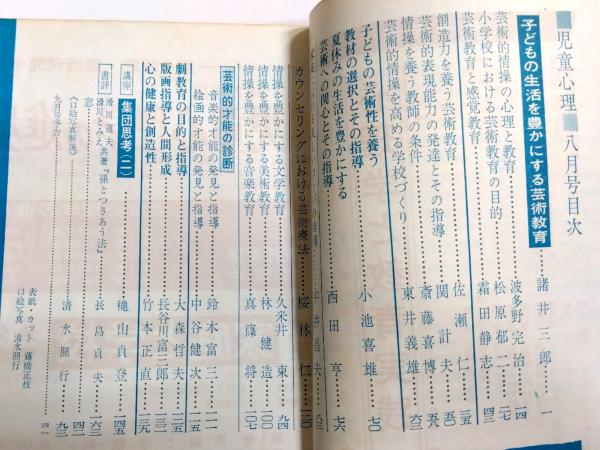 ■児童心理■八月号目次
子どもの生活を豊かにする芸術教育……諸井三郎……一
芸術的情操の心理と教育……波多野完治……一四
小学校における芸術教育の目的……松原郁二……二七
芸術教育と感覚教育……霜田静志……四三
創造力を養う芸術教育……佐瀬仁……五一
芸術的表現能力の発達とその指導……関計夫……五八
情操を養う教師の条件……斎藤喜博……五九
芸術的情操を高める学校づくり……東井義雄……六三
子どもの芸術性を養う
教材の選択とその指導……小池喜雄……七〇
夏休みの生活を豊かにする
芸術への関心とその指導……西田亨……七六
平井昌夫……八三
カウンセリングにおける芸術療法……桜林仁……二〇
情操を豊かにする文学教育……久米井束……九四
情操を豊かにする美術教育……林健造……一〇〇
情操を豊かにする音楽教育……真篠将……一〇七
芸術的才能の診断
音楽的才能の発見と指導……鈴木富三……一一一
絵画的才能の発見と指導……中谷健次……一一五
劇教育の目的と指導……大森哲夫……
版画指導と人間形成……長谷川富三郎……
心の健康と創造性……竹本正直……一三九
講座 集団思考(二)……亀山貞登……一四五
書評 滑川道夫
滑川とみえ共著『孫とつきあう法』……長島貞夫……一六三
窓……清水照行……九三
《口絵写真解説》……四一
九月号予告……
表紙・カット 藤橋正枝
口絵写真 清水照行